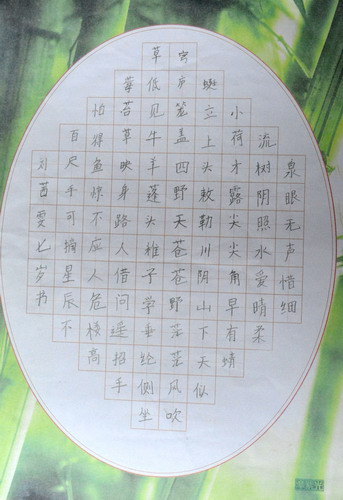 泉眼无声惜细
流树阴照水爱晴柔
小荷才露尖尖角早有蜻
蜓立上头敕勒川阴山下天似
穹庐笼盖四野天苍苍野茫茫风吹
草低见牛羊蓬头稚子学垂纶侧坐
莓苔草映身路人借问遥招手
怕得鱼惊不应人危楼高
百尺手可摘星辰不
刘雯七岁书